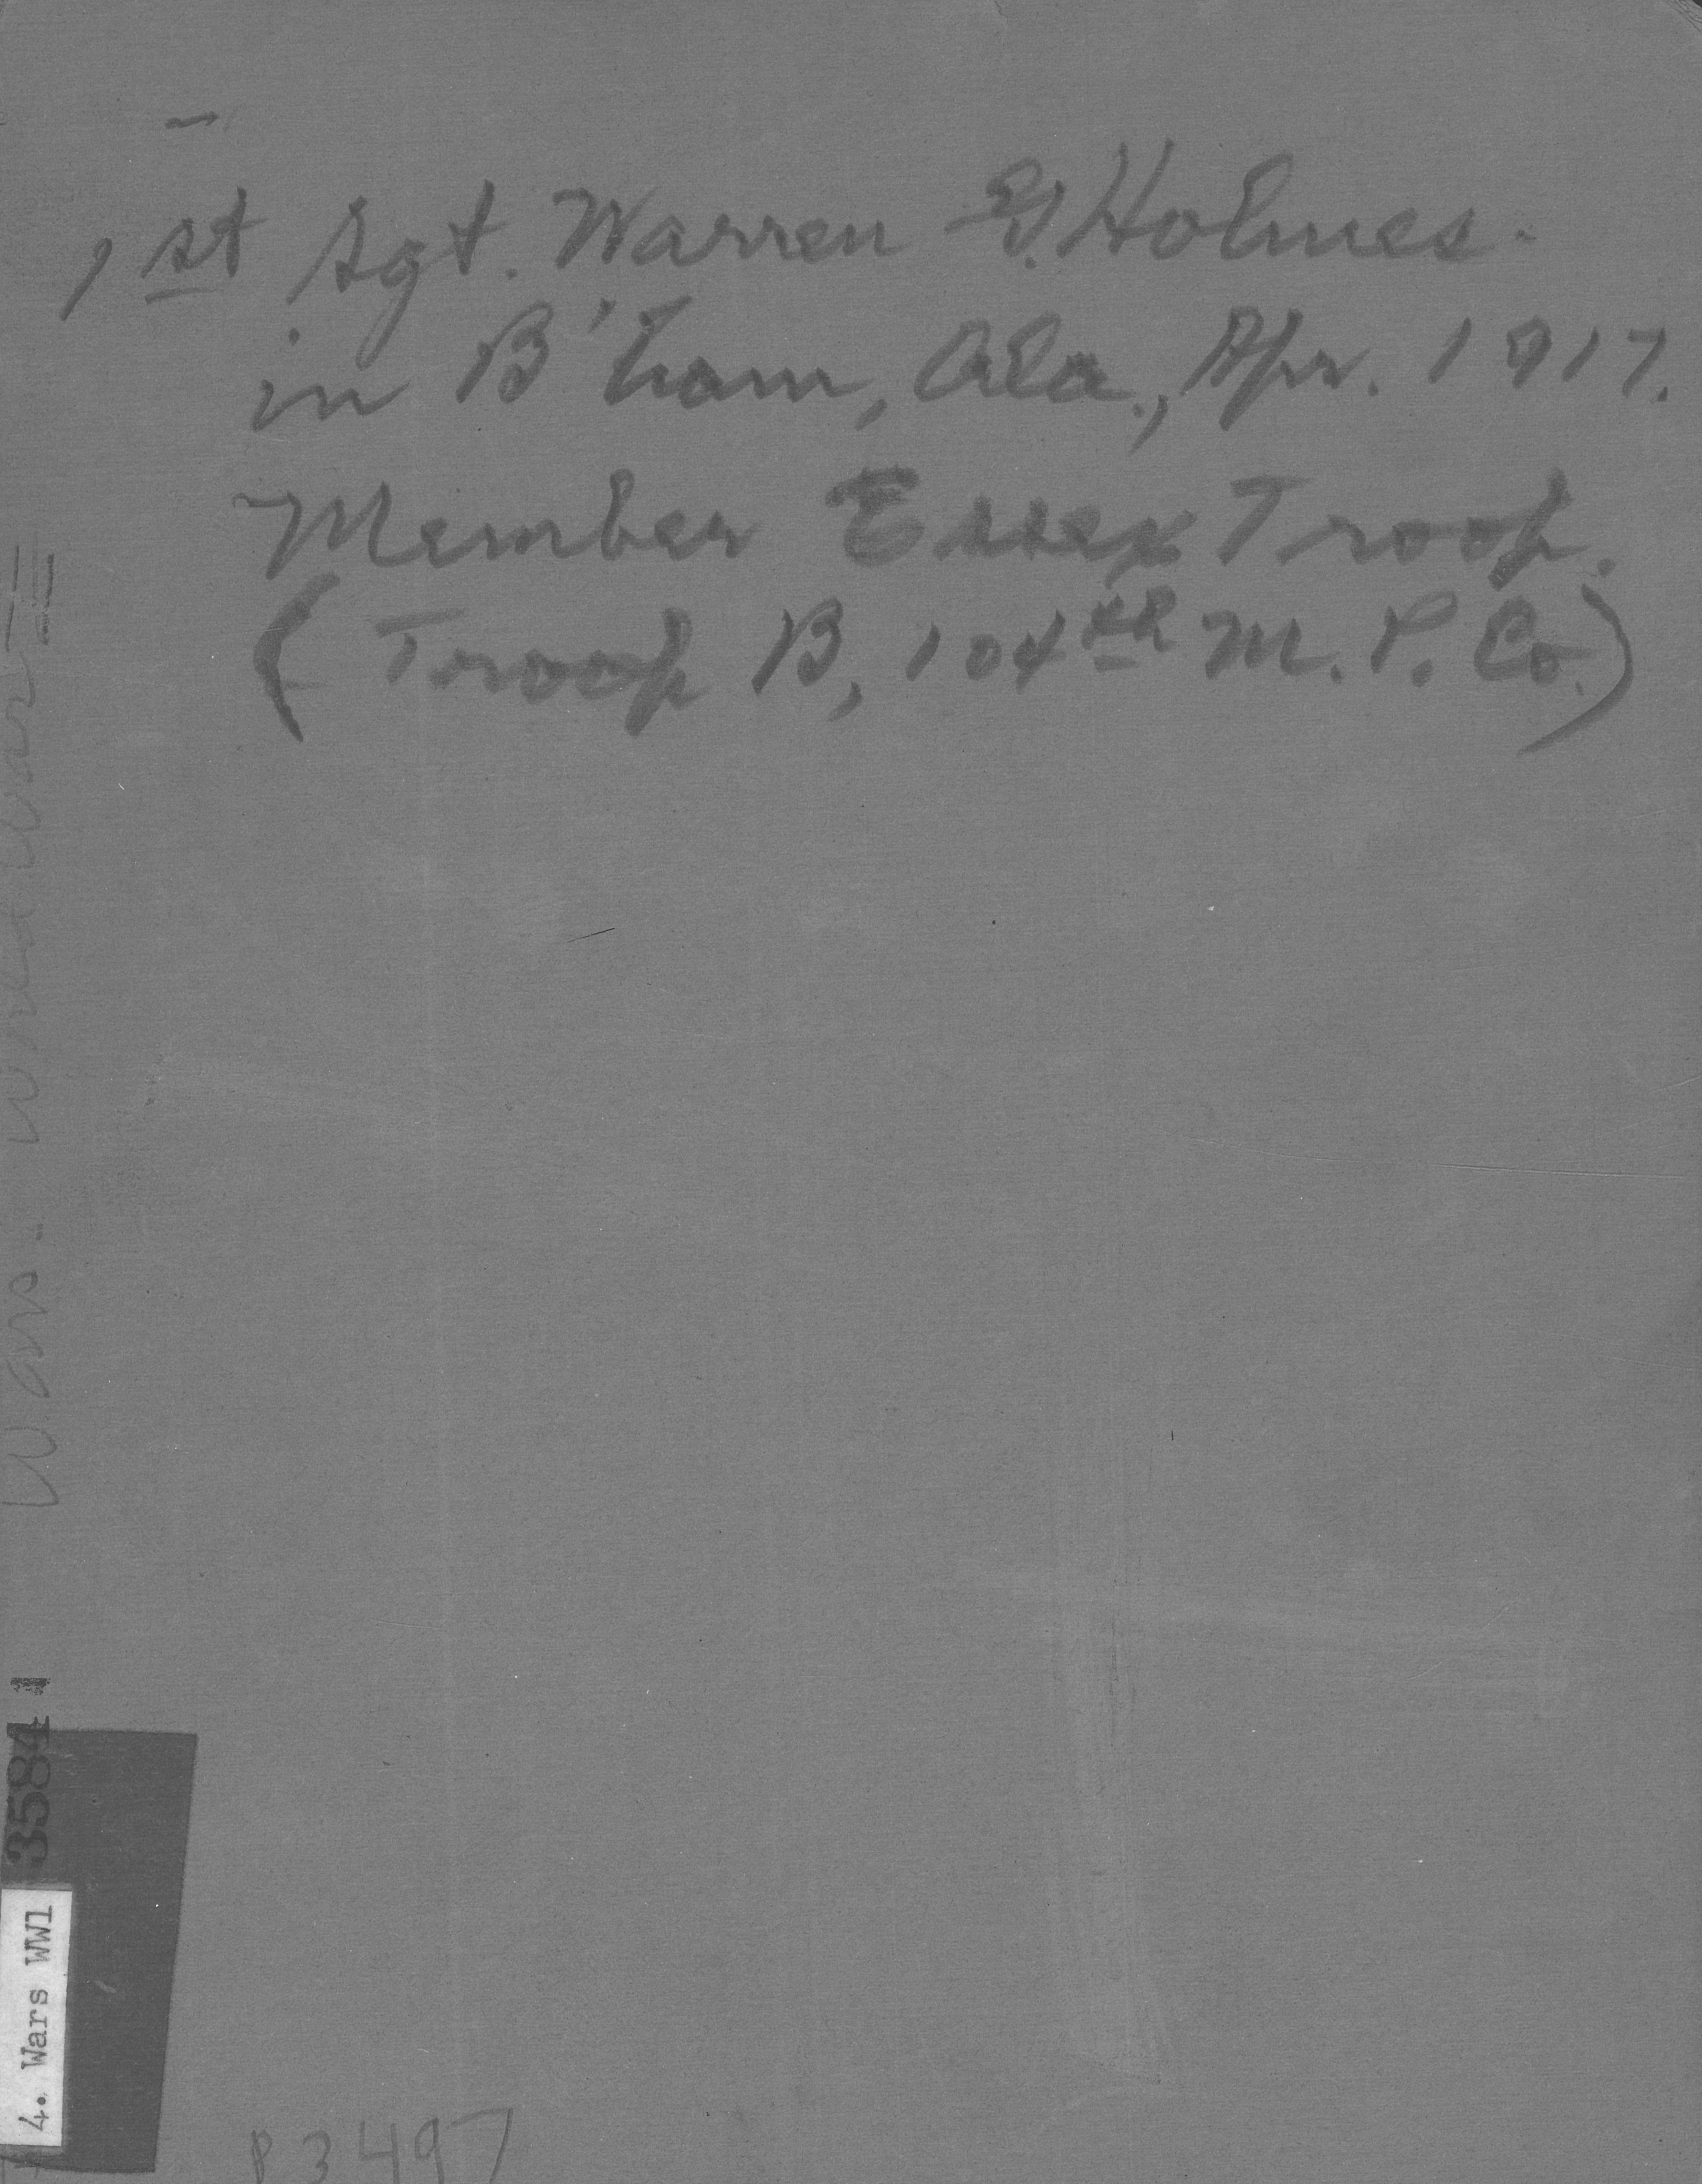 1st Sgt. Warren G. Holmes.
in B'ham, Ala., Apr. 1917.
Member Essex Troop.
(Troop B, 104th M. P. Co.)
Wars - World War I
35841
4. Wars WW1
P3497